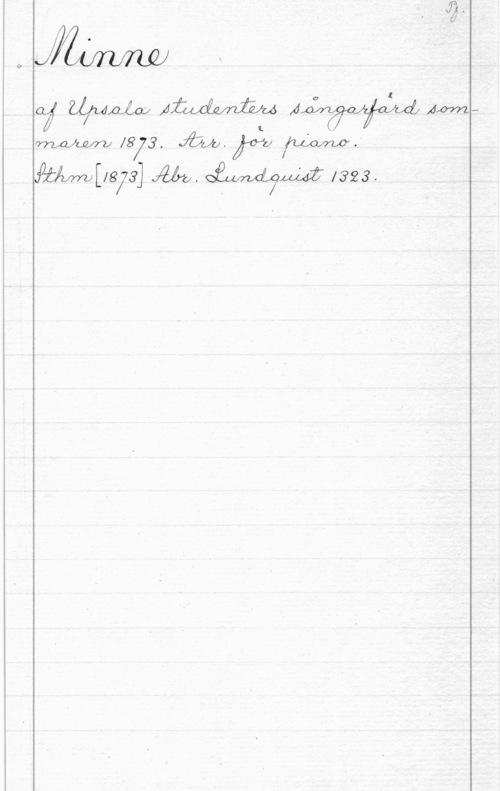 Pf.
Minne
af Upsala studenters sångarfärd som-
maren 1873. Arr. för piano.
Sthm [1873] Abr. Lundquist 1323.